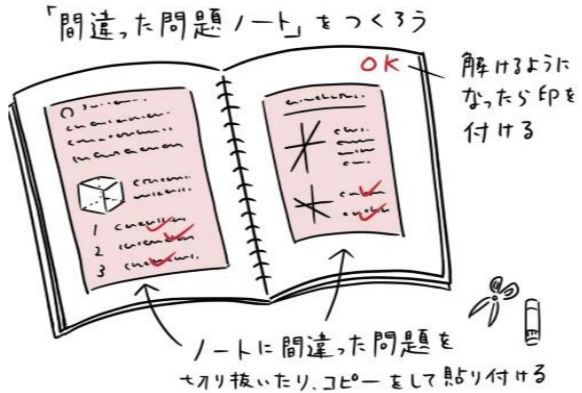 「間違った問題ノート」をつくろう
OK
解けるように
なったら印を
付ける
1
2
3
ノートに間違った問題を
切り抜いたり、コピーをして貼り付ける